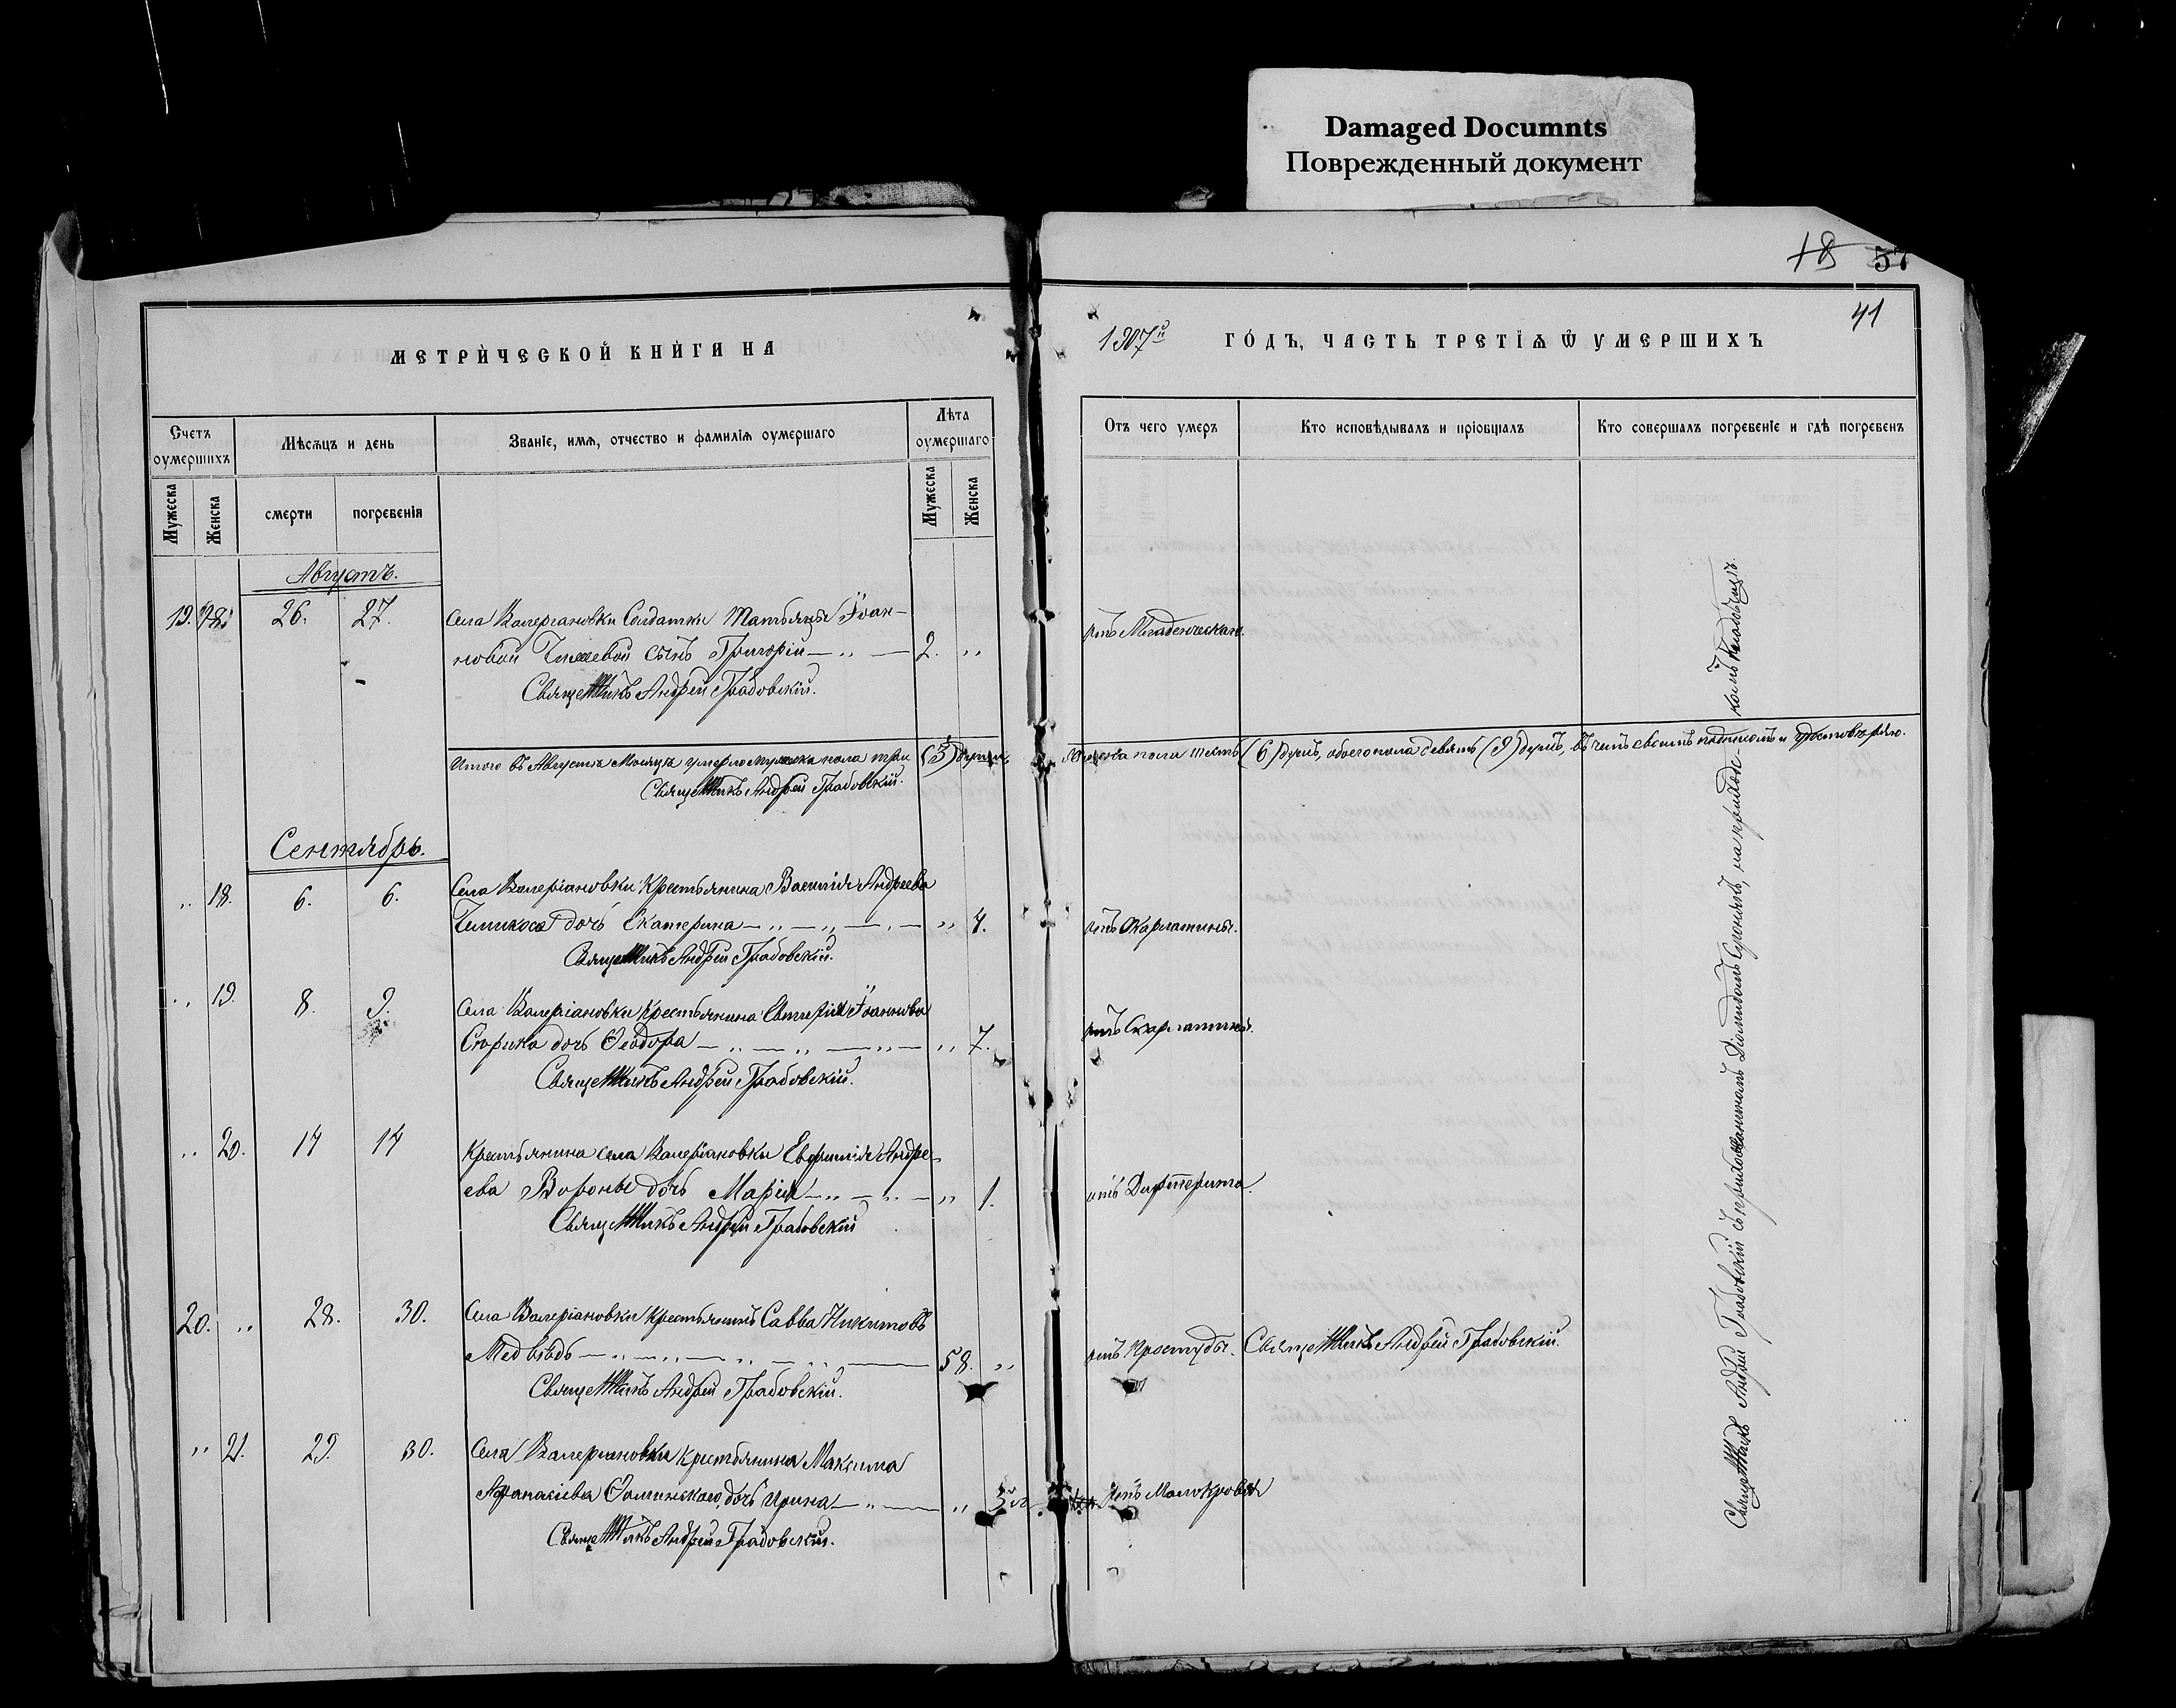 Damaged Documnts
Поврежденный документ
18 57
41
МЕТРИ́ЧЕСКОЙ КНИ́ГИ НА
1907й ГО́ДЪ, ЧАСТЬ ТРЕТЇѦ Ѿ УМЕРШИХЪ
Счетъ оумершихъ
Мѣсѧцъ и день
Званїе, имѧ, отчество и фамилїѧ оумершаго
Лѣта оумершаго
Отъ чего умеръ
Кто исповѣдывалъ и прїобщалъ
Кто совершалъ погребенїе и гдѣ погребенъ
Мужеска
Женска
смерти
погребенїя
Мужеска
Женска
Августъ.
19. 26. 27. Села Валеріановки Солдатки Татьяны Іоан-
новой сынъ Григорій 2. „ отъ Младенческой.
Священникъ Андрей Грабовскій.
Итого въ Августѣ Мѣсяцѣ умерло мужеска пола три (3) души, женска пола шесть (6) душъ, обоего пола девять (9) душъ, въ чемъ своимъ подписомъ и удостовѣряю.
Священникъ Андрей Грабовскій.
Сентябрь.
„ 18. 6. 6. Села Валеріановки Крестьянина Василія Андреева
дочь Екатерина „ 4. отъ Скарлатины.
Священникъ Андрей Грабовскій.
„ 19. 8. 9. Села Валеріановки Крестьянина Іоаннова
дочь Ѳеодора „ 7. отъ Скарлатины.
Священникъ Андрей Грабовскій.
„ 20. 14 14 Крестьянина села Валеріановки Евфимія Андре-
ева Вороны дочь Марія „ 1. отъ Дифтерита.
Священникъ Андрей Грабовскій
20. „ 28. 30. Села Валеріановки Крестьянинъ Савва Никитовъ
Медвѣдь 58. „ отъ Простуды. Священникъ Андрей Грабовскій.
Священникъ Андрей Грабовскій.
„ 21. 29. 30. Села Валеріановки Крестьянина Максима
Афанасіева дочь Ирина „ отъ Малокровія
Священникъ Андрей Грабовскій.
Священникъ Андрей Грабовскій съ Діомидомъ на приходскомъ кладбищѣ.